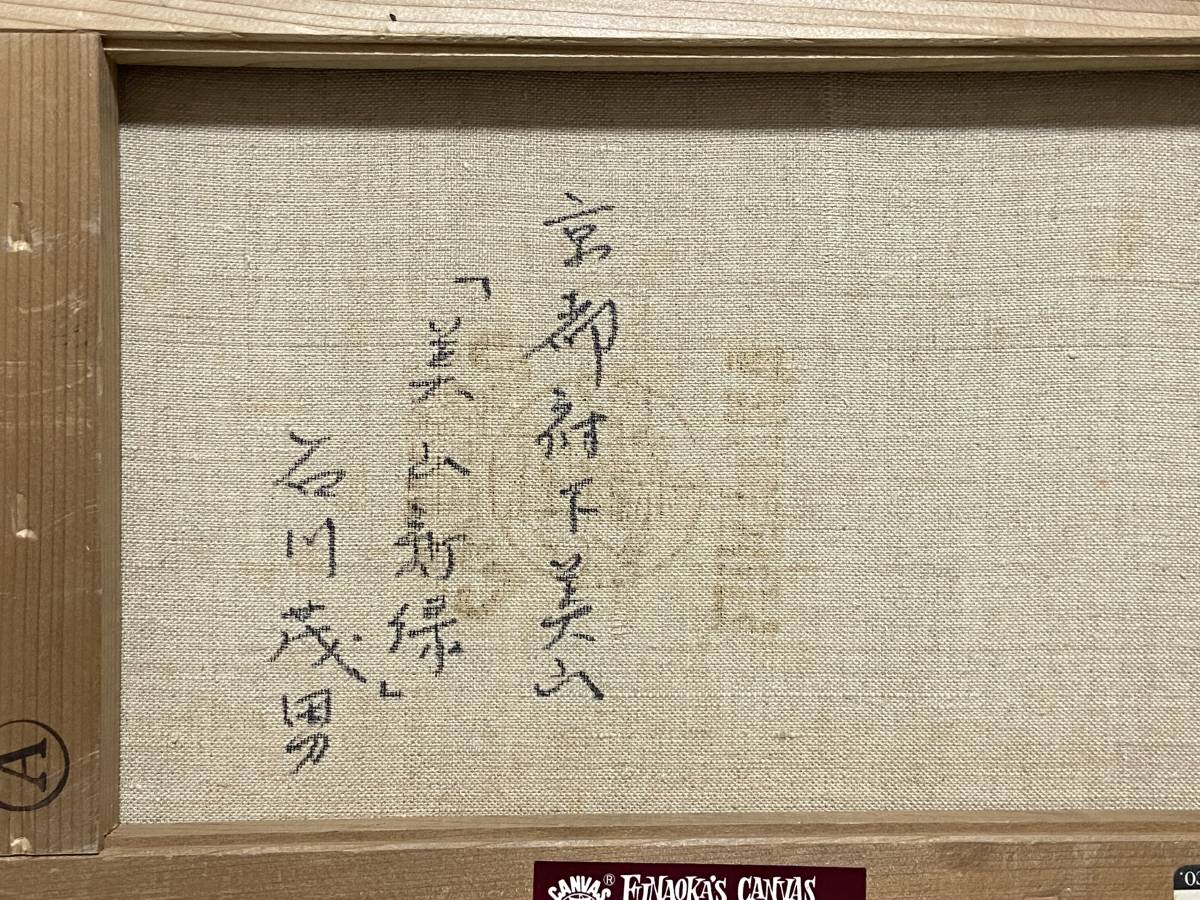 京都府下美山
「美山新緑」
石川茂男
A
CANVAS® FUNAOKA'S CANVAS
CO.